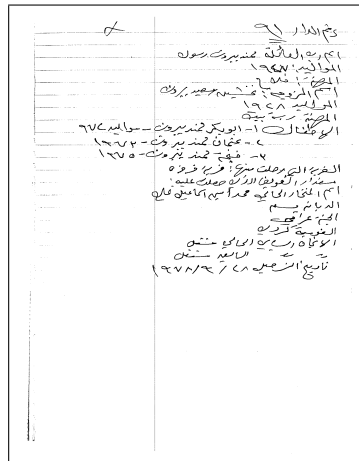 رقم الدار ٩١
اسم رب العائلة حمد بيروت رسول
المواليد: ١٩٤٧
المهنة: فلاح
اسم الزوجة: سعيد بيروت
المواليد ١٩٢٨
المهنة ربة بيت
الاطفال ١- ابوبكر حمد بيروت - مواليد ٩٧٢
٢- عثمان حمد بيروت - ١٩٧٣
٣- حمد بيروت - ١٩٧٥
القرية التي رحلت منها: قرية
مقدار التعويض الذي حصلت عليه:
اسم المختار الحالي محمد امين اسماعيل
الديانة مسلم
الجنسية عراقي
القومية كردي
الاتجاه السياسي الحالي مستقل
السابق مستقل
تاريخ الترحيل ٢٨/٦/١٩٧٨